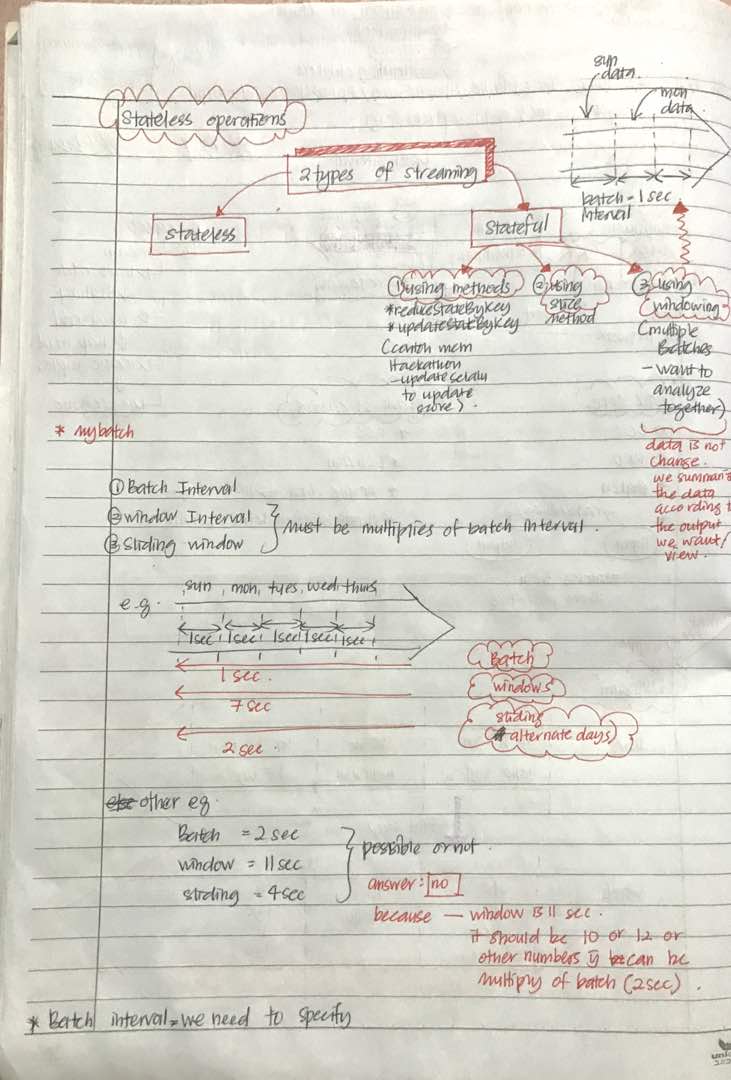 sun
data
mon
data
Stateless operations
2 types of streaming
batch - 1 sec
Interval
stateless
stateful
① using methods
* reduceStateByKey
* updateStateByKey
(contoh mcm
Hackathon
- update selalu
to update
score).
② using
slice
method
③ using
windowing
(multiple
Batches
- want to
analyze
together)
data is not
change.
we summari
the data
according t
the output
we want/
view.
* nybatch
① Batch Interval
② window Interval
③ Sliding window
must be multiplies of batch interval.
e.g. sun, mon, tues, wed, thurs
1sec 1sec 1sec 1sec 1sec
1 sec.
Batch
7 sec
windows
2 sec.
sliding
(alternate days)
other eg.
Batch = 2 sec
window = 11 sec
sliding = 4 sec
possible or not.
answer: no
because — window is 11 sec.
it should be 10 or 12 or
other numbers yg can be
multiply of batch (2 sec).
* Batch interval = we need to specify